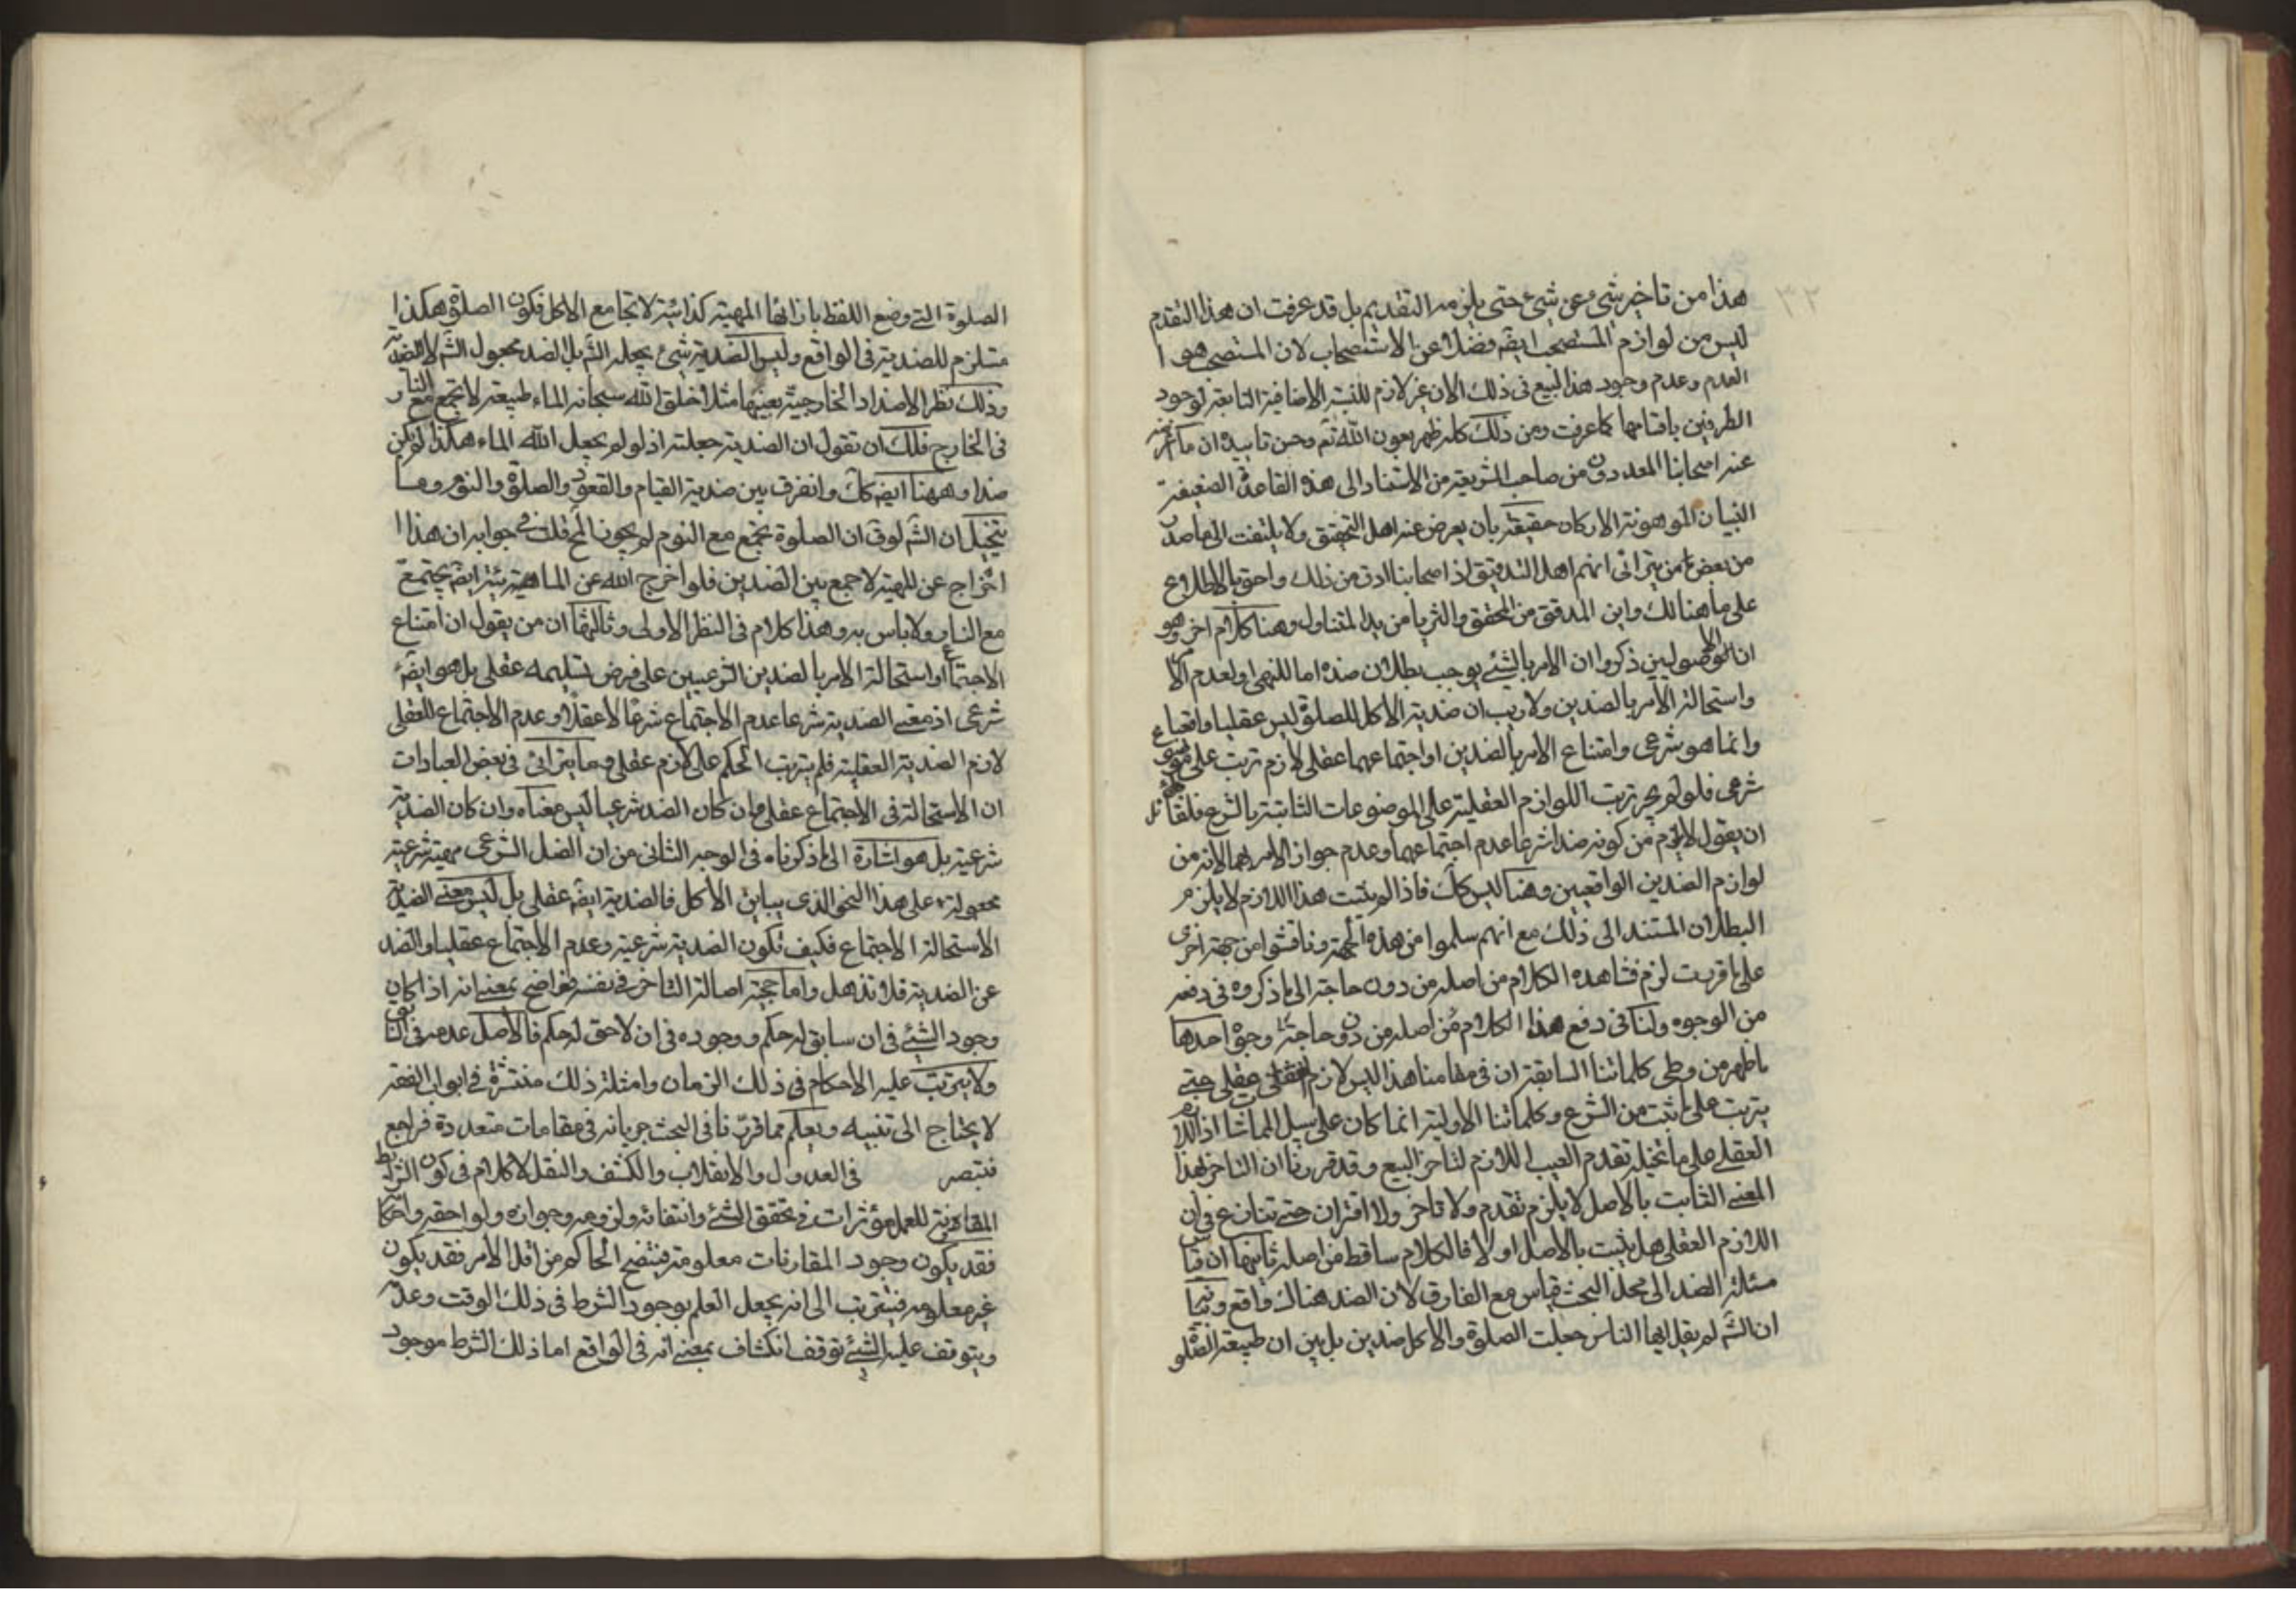 ٣٢
هذا من تاخير شئ عن شئ حتى يلزمه التقديم بل قد عرفت ان هذا التقدم
ليس من لوازم المستصحب ايضه فضلا عن الاستصحاب لان المستصحب هو
العدم وعدم وجود هذا البيع فى ذلك الان غير لازم للنسبة الاضافية التابعة لوجود
الطرفين باقسامها كما عرفت ومن ذلك كله ظهر بعون الله تعم وحسن تاييده ان ما
عند اصحابنا المعدودون من صاحب الشريعة من الاستناد الى هذه القاعدة الضعيفة
البنيان الموهونة الاركان حقيقة بان يعرض عنه اهل التحقيق ولا يلتفت الى ما صدر
من بعض من يترائى انهم اهل التدقيق اذ اصحابنا ادق من ذلك واحق بالاطلاع
على ما هنالك واين المدقق من المحقق والثريا من يد المتناول وهنا كلام اخر وهو
ان الاصوليين ذكروا ان الامر بالشئ يوجب بطلان ضده اما للنهى او لعدم الامر
واستحالة الامر بالضدين ولا ريب ان ضدية الاكل للصلوة ليس عقليا واقعيا
وانما هو شرعى وامتناع الامر بالضدين او اجتماعهما عقلى لازم ترتب على موضوع
شرعى فلو لم يجز ترتب اللوازم العقلية على الموضوعات الثابتة بالشرع فلقائل
ان يقول لا يلزم من كونه ضدا شرعا عدم اجتماعهما وعدم جواز الامر بهما لانه من
لوازم الضدين الواقعيين وهنا ليس كك فاذا لم يثبت هذا اللازم لا يلزم
البطلان المستند الى ذلك مع انهم سلموا من هذه الجهة وناقشوا من جهة اخرى
على ما قررت لزم فساد هذه الكلام من اصله من دون حاجة الى ما ذكروه فى دفعه
من الوجوه ولنا فى دفع هذا الكلام من اصله من دون حاجة وجوه احدها
ما ظهر من وطى كلماتنا السابقة ان فى مقامنا هذا ليس لازم عقلى حتى
يترتب على ما ثبت من الشرع وكلماتنا الاولية انما كان على سبيل المماشاة اذ اللازم
العقلى على ما تخيله تقدم العيب اللازم لتاخر البيع وقد قررنا ان التاخر بهذا
المعنى الثابت بالاصل لا يلزم تقدم ولا تاخر ولا اقتران حتى تنازع فى ان
اللازم العقلى هل يثبت بالاصل او لا فالكلام ساقط من اصله ثانيها ان قياس
مسئلة الضد الى محل البحث قياس مع الفارق لان الضد هناك واقع
ان الشه لم يقل ايها الناس جعلت الصلوة والاكل ضدين بل بين ان طبيعة الصلوة
الصلوة التى وضع اللفظ بازائها المهية كذائية لا تجامع الاكل فكون الصلوة هكذا
مستلزم للضدية فى الواقع وليس الضدية شئ يجعله الشه بل الضد مجعول الشه لا الضدية
وذلك نظر الاضداد الخارجية بعينها مثلا خلق الله سبحانه الماء طبيعة لا تجتمع مع النار
فى الخارج فلك ان تقول ان الضدية جعلته اذ لو لم يجعل الله الماء هكذا لم يكن
ضدا وههنا ايضه كك وانفرق بين ضدية القيام والقعود والصلوة والنوم وما
يتخيل ان الشه لو ق ان الصلوة تجتمع مع النوم لم يكونا فى جوابه ان هذا
اخراج عن المهية لا جمع بين الضدين فلو اخرج الله عن الماء هيئة ايضه يجتمع
مع النار ولا باس به وهذا كلام فى النظر الاولى وثالثها ان من يقول ان امتناع
الاجتماع او استحالة الامر بالضدين الشرعيين على فرض تسليمه عقلى بل هو ايضه
شرعى اذ معنى الضدية شرعا عدم الاجتماع شرعا لا عقلا وعدم الاجتماع العقلى
لازم الضدية العقلية فلم يترتب الحكم على لازم عقلى وما يترائى فى بعض العبارات
ان الاستحالة فى الاجتماع عقلى وان كان الضد شرعيا ليس معناه وان كان الضدية
شرعية بل هو اشارة الى ما ذكرناه فى الوجه الثانى من ان الضد الشرعى مهية شرعية
مجعولة على هذا النحو الذى يباين الاكل فالضدية ايضه عقلى بل ليس معنى الضدية
الاستحالة الاجتماع فكيف تكون الضدية شرعية وعدم الاجتماع عقليا والضد
عن الضدية فلا تذهل واما حجية اصالة التاخر فى نفسه فواضح بمعنى انه اذا كان
وجود الشئ فى ان سابق له حكم ووجوده فى ان لاحق له حكم فالاصل عدمه فى السابق
ولا يترتب عليه الاحكام فى ذلك الزمان وامثلة ذلك منتشرة فى ابواب الفقه
لا يحتاج الى تنبيه ويعلم مما قررنا فى البحث جريانه فى مقامات متعددة فراجع
فتبصر فى العدول والانقلاب والكشف والنقل لا كلام فى كون الشرايط
المقارنة للعمل مؤثرات فى تحقق الشئ وانتفائه ولزومه وجوازه ولواحقه واحكامه
فقد يكون وجود المقارنات معلومة فيتضح الحاكم من اول الامر فقد يكون
غير معلومه فيترتب الى انه يجعل العلم بوجود الشرط فى ذلك الوقت وعدمه
ويتوقف عليه الشئ توقف انكشاف بمعنى انه فى الواقع اما ذلك الشرط موجود